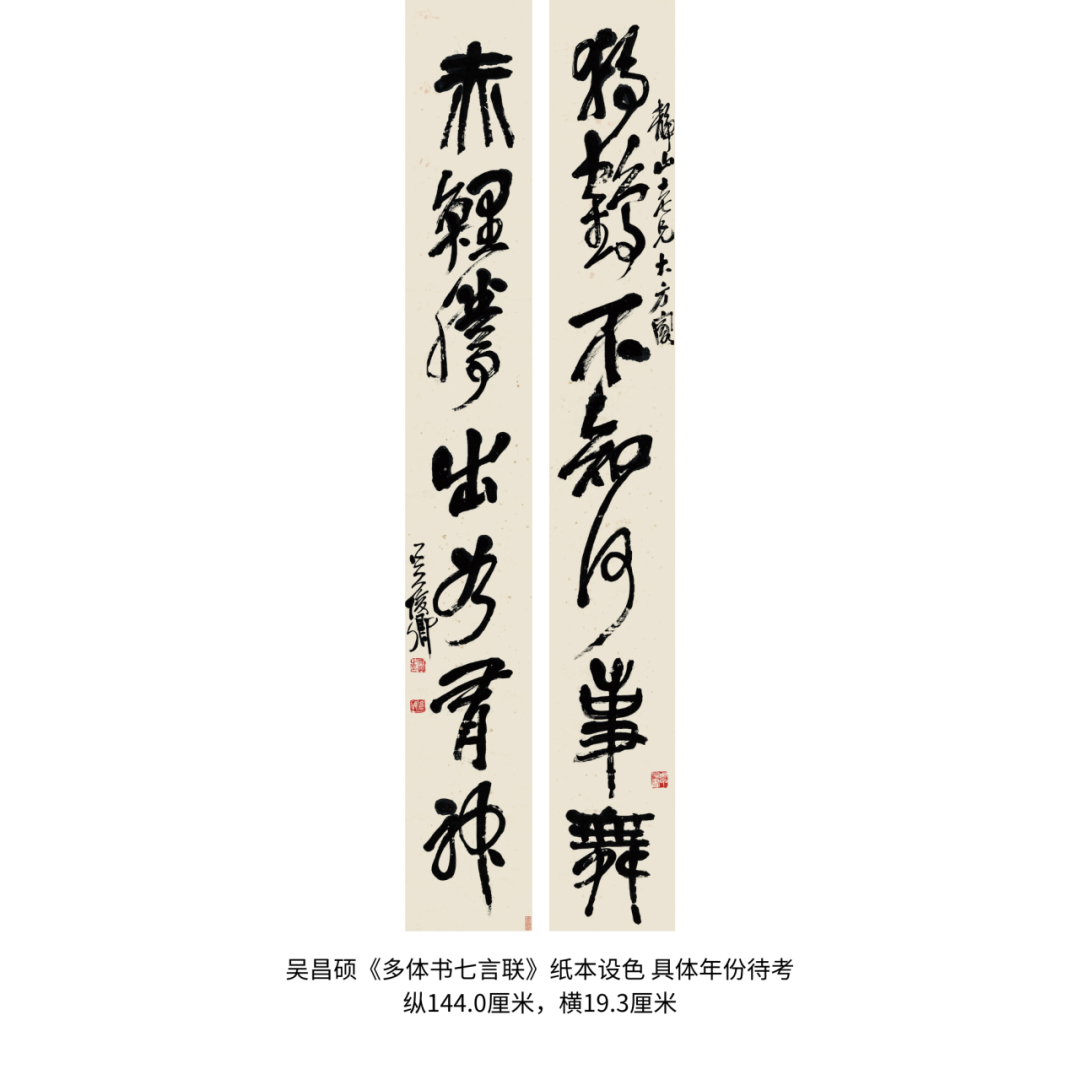 靜山老兄大方
獨鶴不知何事舞
赤鯉騰出如有神
吳俊卿
吴昌硕《多体书七言联》纸本设色 具体年份待考
纵144.0厘米，横19.3厘米